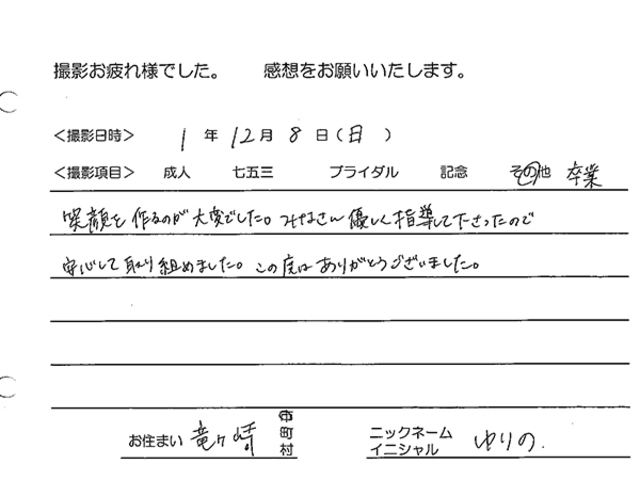 撮影お疲れ様でした。 感想をお願いいたします。
<撮影日時> 1 年 12 月 8 日 (日)
<撮影項目> 成人 七五三 ブライダル 記念 その他 卒業
笑顔を作るのが大変でした。みなさん優しく指導して下さったので
安心して取り組めました。この度はありがとうございました。
お住まい 竜ヶ崎 市 町 村 ニックネーム イニシャル ゆりの